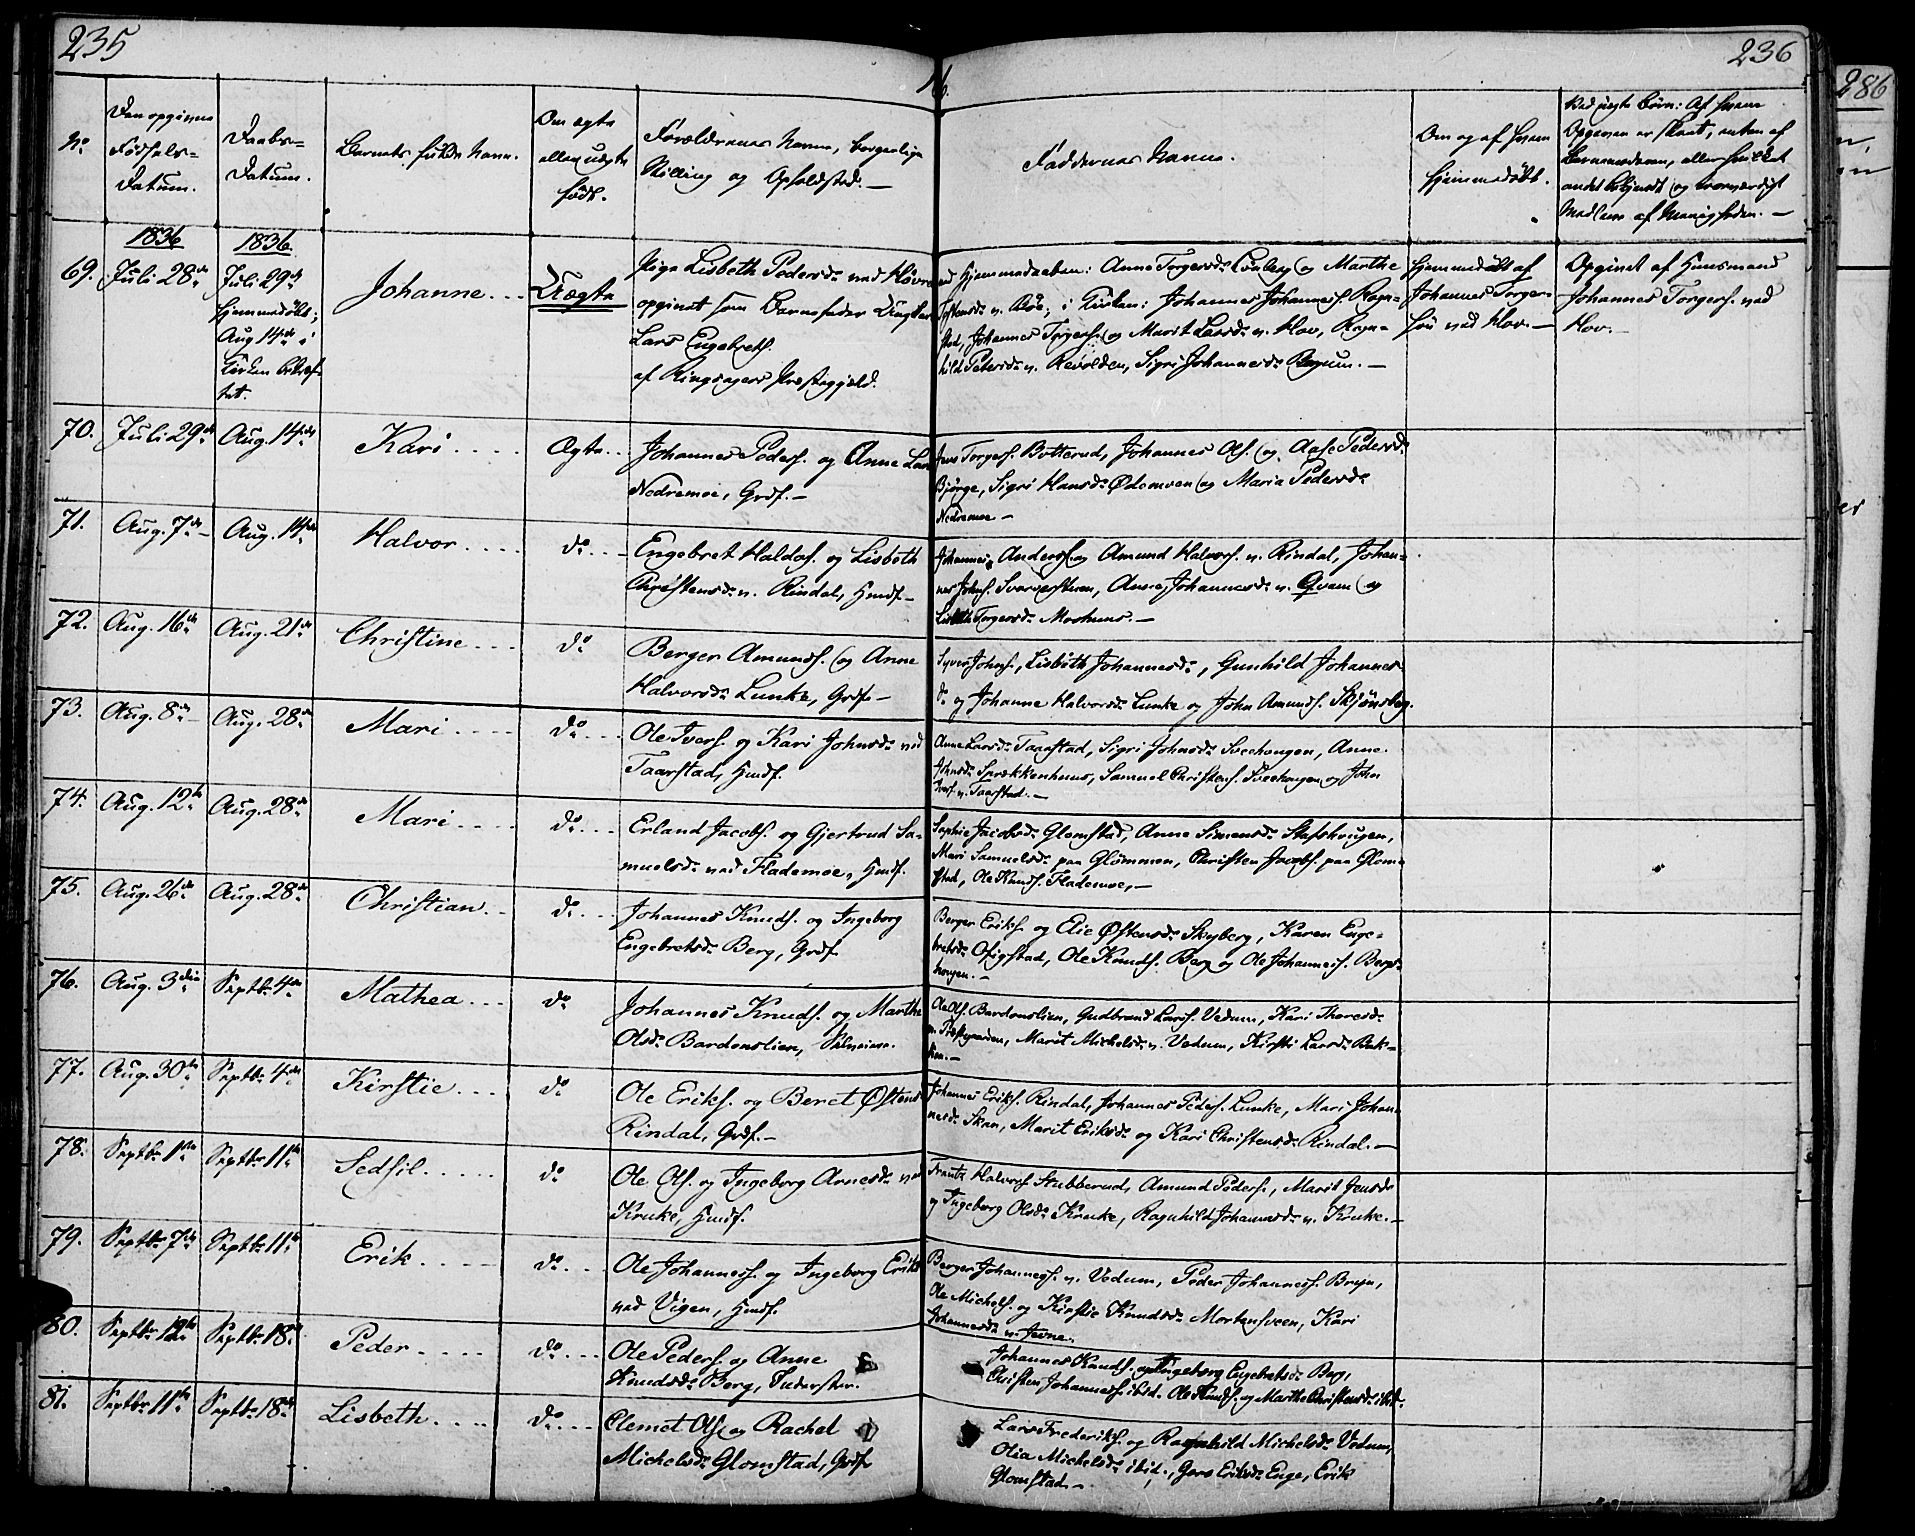 235
236
286
N.
Den opgivne
Fødsels-
Datum.
Daabs-
Datum.
Barnets fulde Navn.
Om ægte
eller uægte
født.
Forældrenes Navne, borgerlige
Stilling og Opholdsted.
Faddernes Navne.
Om og af hvem
hjemmedøbt.
Ved uægte Børn: Af hvem
Opgiven er skeet, enten af
Barnemoderen, eller hvilket
andet bekjendt og troværdigt
Medlem af Menigheden.
1836
1836.
69. Juli 28de
Juli 29de
hjemmedøbt;
Aug 14de i
Kirken
Johanne
Uægte
Pige Lisbeth Pedersd. ved
opgivet som Barnefader Ungkarl
Lars Engebrets.
af Ringsagers Præstegjeld.
Hjemmedaaben: Anne Torgersd. og Marthe
i Kirken: Johannes Johanness.
Johannes Torgers. og Marit Larsd. v. Hov, Ragn-
hild Petersd. v. Sigri Johannesd.
Hjemmedøbt af
Johannes Torger-
søn ved Hov.
Opgivet af Huusmand
Johannes Torgers. ved
Hov.
70. Juli 29de Aug. 14de Kari Ægte
Johannes Peders. og Anne Lars
Nedremoe, Grdf.
Jens Torgers. Botterud, Johannes Ols. og Aase Pedersd.
Bjørge, Sigri Hansd. Ødemoen og Maria Pedersd.
Nedremoe
71. Aug. 7de Aug. 14de Halvor do
Engebret og Lisbeth
Christensd. v. Rindal, Hmdf.
Johannes Anders. og Amund Halvors. v. Rindal, Johan-
nes Johns. Anne Johannesd. v. Qvam og
Lisbeth Torgersd.
72. Aug. 16de Aug. 21de Christine do
Berger Amunds. og Anne
Halvorsd. Lunke, Grdf.
Syver Johns., Lisbeth Johannesd., Gunhild Johannes
d. og Johanne Halvorsd. Lunke og John Amunds. Skjønsberg.
73. Aug. 8de Aug. 28de Mari do
Ole Ivers. og Kari Johnsd. ved
Taarstad, Hmdf.
Anne Larsd. Taarstad, Sigri Johnsd. Svechougen, Anne
Johnsd. Samuel Christens. Svechougen og John
Ivers. v. Taarstad.
74. Aug. 12te Aug. 28de Mari do
Erland Jacobs. og Gjertrud Sa-
muelsd. ved Flademoe, Hmdf.
Sophie Jacobsd. Glomstad, Anne Simensd.
Mari Samuelsd. paa Glommen, Christen Jacobs. paa Glom-
stad, Ole Knuds. Flademoe,
75. Aug. 26de Aug. 28de Christian do
Johannes Knuds. og Ingeborg
Engebretsd. Berg, Grdf.
Berger Eriks. og Elie Østensd. Skyberg, Karen Enge-
bretsd. Ofigstad, Ole Knuds. Berg og Ole Johanness. Bergs-
hougen.
76. Aug. 3die Septbr. 4de Mathea do
Johannes Knuds. og Marthe
Olsd. Bardonslien,
Ole Ols. Bardonslien, Gudbrand Lars. Vedum, Kari Thoresd.
v. Præstgaarden, Marit Michelsd. v. Vedum, Kirsti Larsd. Bak-
ken.
77. Aug. 30te Septbr. 4de Kirstie do
Ole Eriks. og Beret Østens
Rindal, Grdf.
Johannes Eriks. Rindal, Johannes Peders. Lunke, Mari Johan-
nesd. Skar, Marit Eriksd. og Kari Christensd. Rindal.
78. Septbr. 1ste Septbr. 11te Sedsil do
Ole Ols. og Ingeborg Arnesd. ved
Kruke, Hmdf.
Frantz Halvors. Stubberud, Amund Peders., Marit Jensd.
og Ingeborg Olsd. Kruke, Ragnhild Johannesd. v. Kruke.
79. Septbr. 7de Septbr. 11te Erik do
Ole Johanness. og Ingeborg Eriks
ved Vigen, Hmdf.
Berger Johanness. v. Vedum, Peder Johanness. Bryn,
Ole Michels. og Kirstie Knudsd. Mortensveen, Kari
Johannesd. v. Jevne.
80. Septbr. 12te Septbr. 18de Peder do
Ole Peders. og Anne
Knudsd. Berg, Inderster.
Johannes Knuds. og Ingeborg Engebretsd. Berg,
Christen Johanness. ibid. Ole Knuds. og Marthe Christensd. ibid.
81. Septbr. 11te Septbr. 18de Lisbeth do
Clemet Ols. og Rachel
Michelsd. Glomstad, Grdf.
Lars Frederiks. og Ragnhild Michelsd. Vedum,
Olia Michelsd. ibid., Goro Eriksd. Enge, Erik
Glomstad.